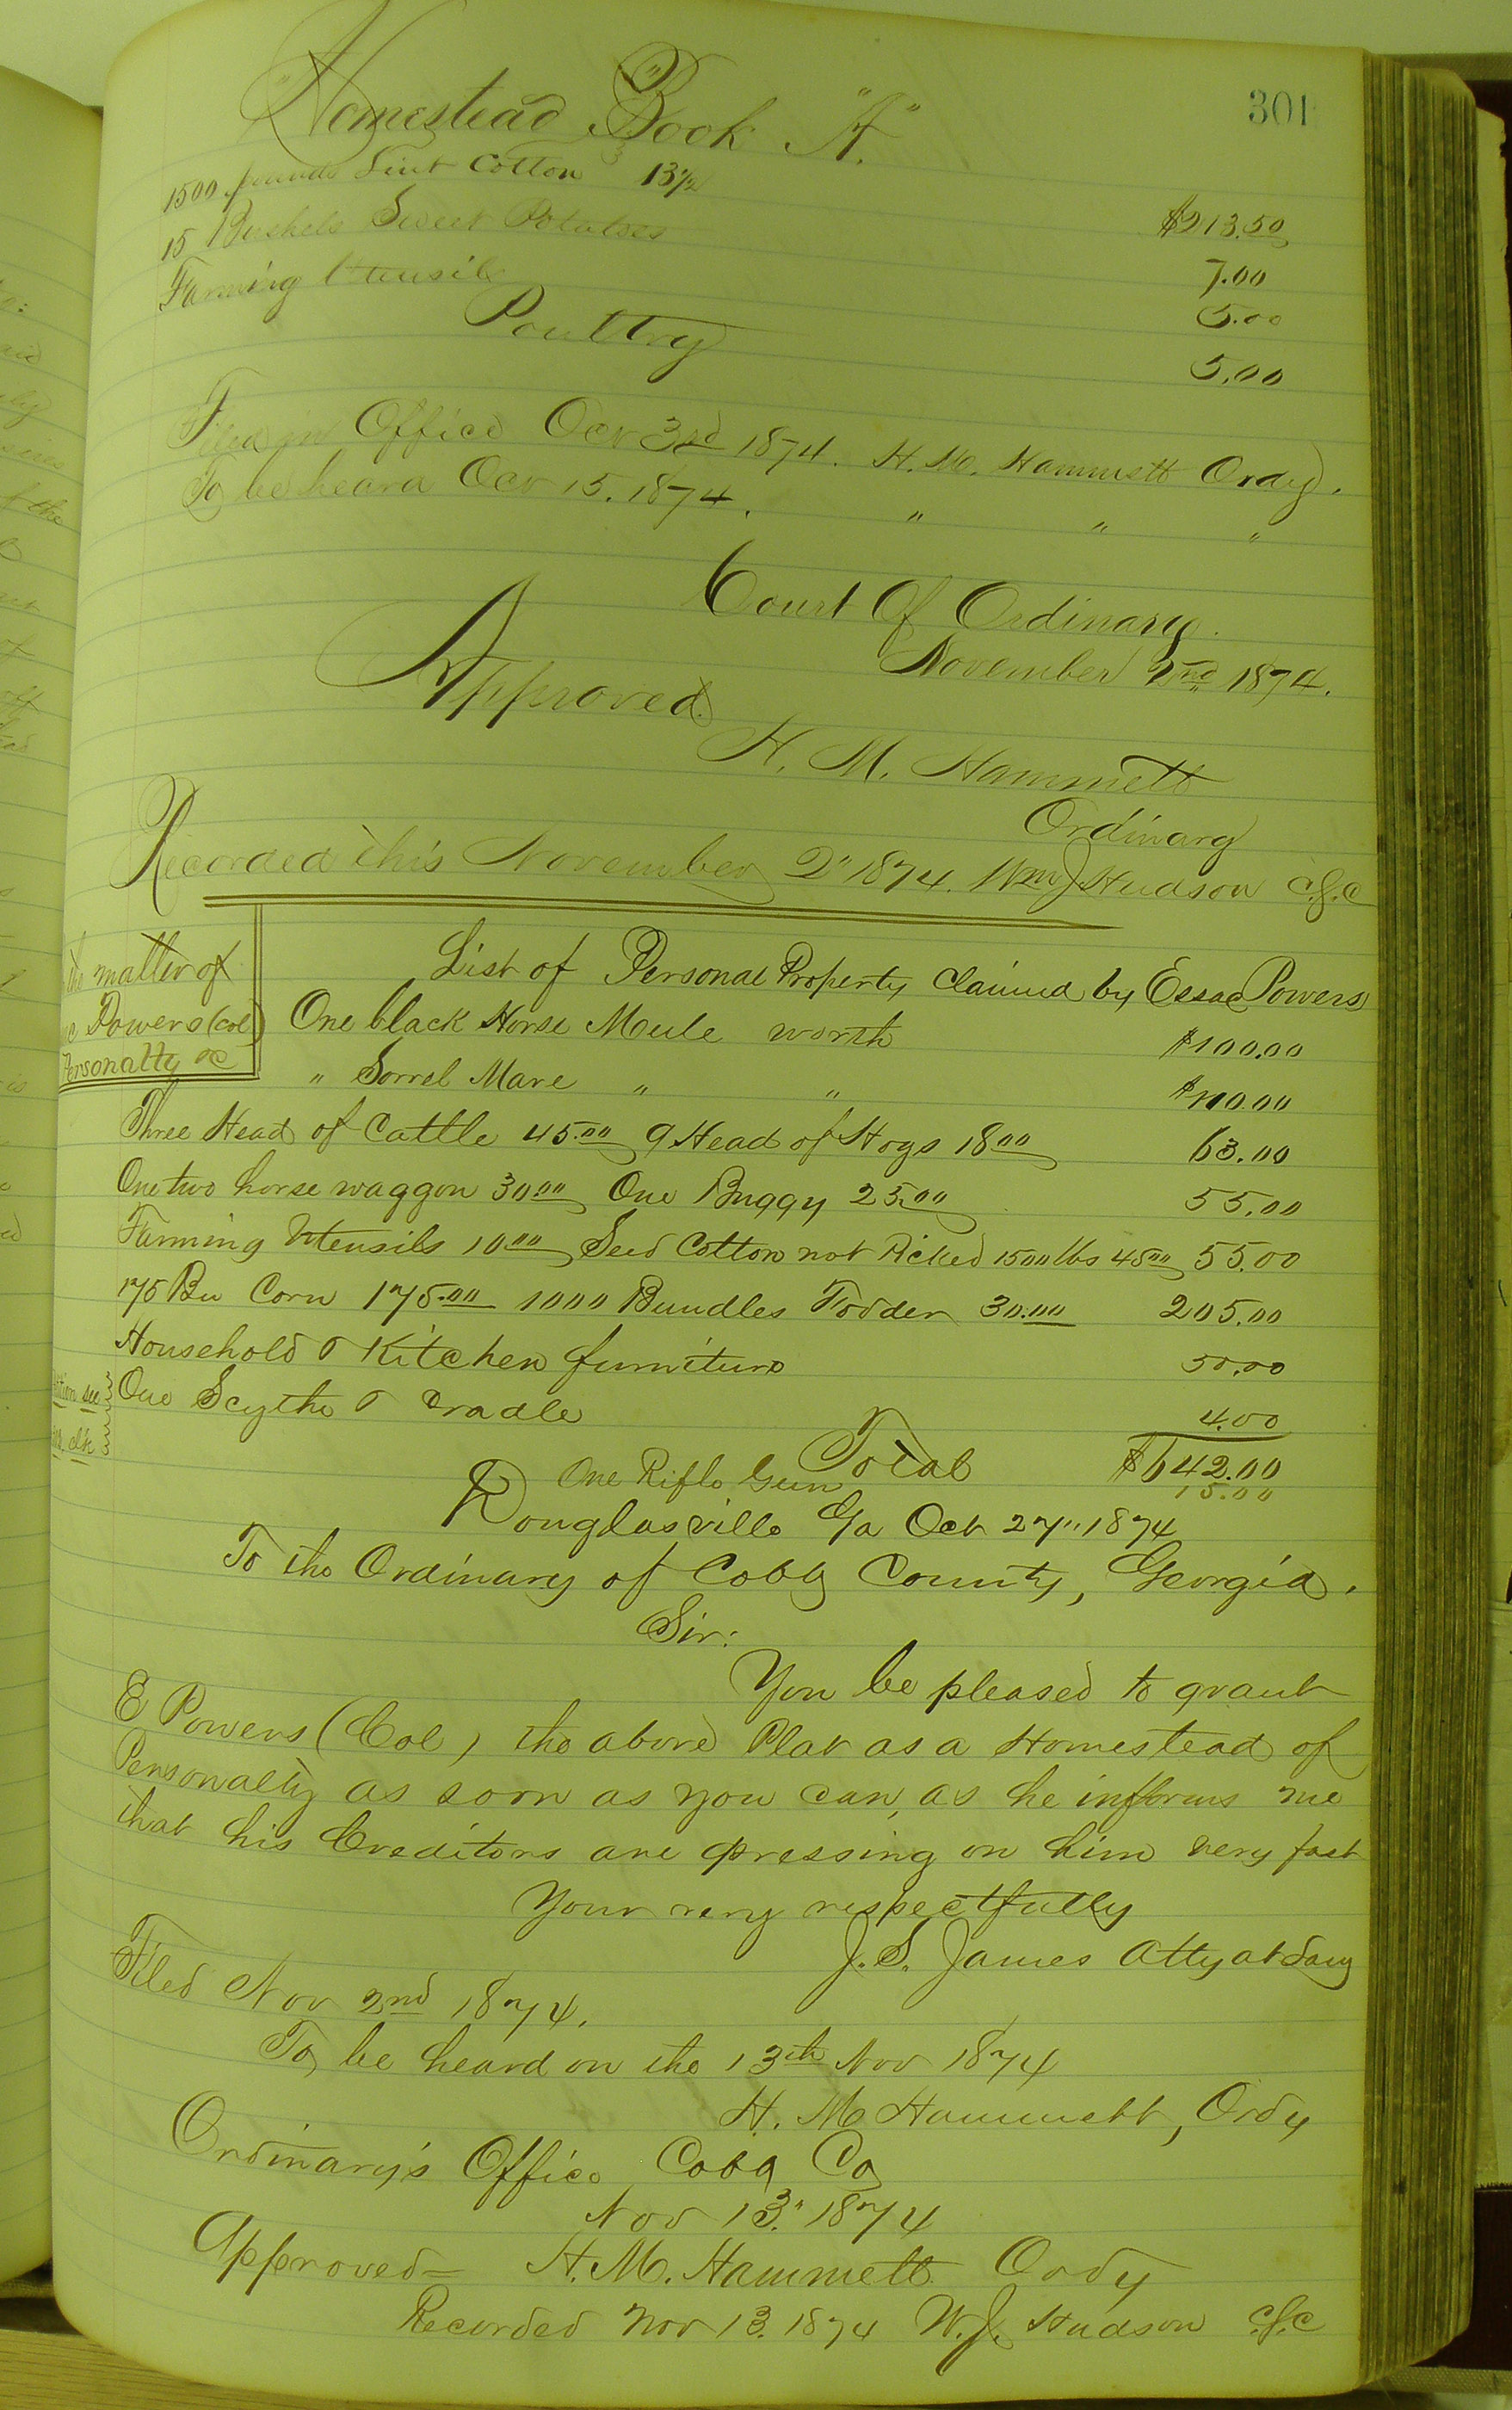 301
"Homestead Book "A."
1500 pounds Lint Cotton 13½ $213.50
15 Bushels Sweet Potatoes 7.00
Farming Utensils 5.00
Poultry 5.00
Filed in Office Oct 3rd 1874. H. M. Hammett Ordy.
To be heard Oct 15. 1874. " " "
Court Of Ordinary.
November 2nd 1874.
Approved.
H. M. Hammett
Ordinary
Recorded this November 2" 1874. Wm J Hudson C.S.C
the matter of
Powers (Col)
Personalty &c
List of Personal Property claimed by Essac Powers
One black Horse Meule worth $100.00
" Sorrel Mare " " $110.00
Three Head of Cattle 45.00 9 Head of Hogs 18 00 63.00
One two horse waggon 30.00 One Buggy 25.00 55.00
Farming Utensils 10 00 Seed Cotton not Picked 1500 lbs 45 00 55.00
175 Bu Corn 175.00 1000 Bundles Fodder 30.00 205.00
Household & Kitchen furniture 50.00
One Scythe & Cradle 4.00
see
clk
Total $642.00
One Rifle Gun 15.00
Douglasville Ga Oct 27" 1874
To the Ordinary of Cobb County, Georgia.
Sir:
You be pleased to grant
E Powers (Col) the above Plat as a Homestead of
Personalty as soon as you can, as he informs me
that his Creditors are pressing on him very fast
Your very respectfully
J. S. James Atty at Law
Filed Nov 2nd 1874.
To be heard on the 13th Nov 1874
H. M Hammett, Ordy
Ordinary's Office Cobb Co
Nov 13." 1874
Approved= H. M. Hammett Ordy
Recorded Nov 13. 1874 W. J. Hudson C.S.C